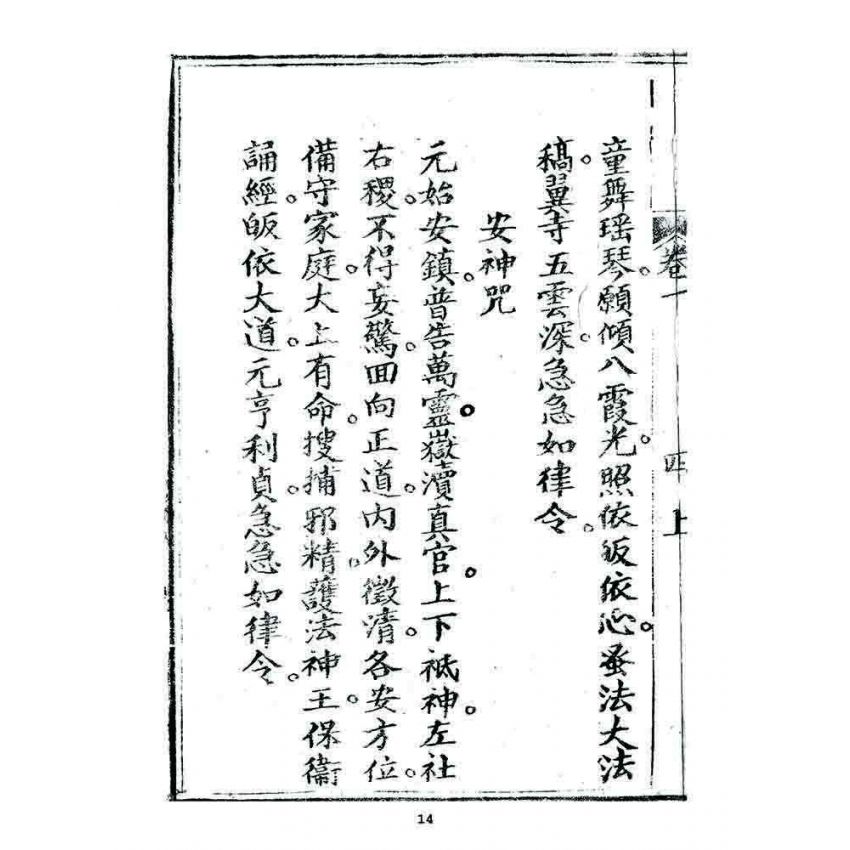 卷一
四 上
童舞瑶琴。願傾八霞光。照依皈依心。蚤法大法
稿。翼寺五雲深。急急如律令。
安神咒
元始安鎮。普告萬靈。嶽瀆真官。上下祗神。左社
右稷。不得妄驚。回向正道。内外徵清。各安方位。
備守家庭。大上有命。搜捕邪精。護法神王。保衞
誦經。皈依大道。元亨利貞。急急如律令。
14